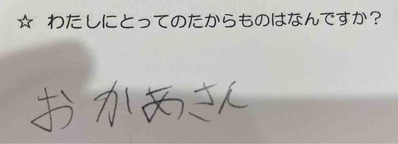 ☆ わたしにとってのたからものはなんですか？
おかあさん